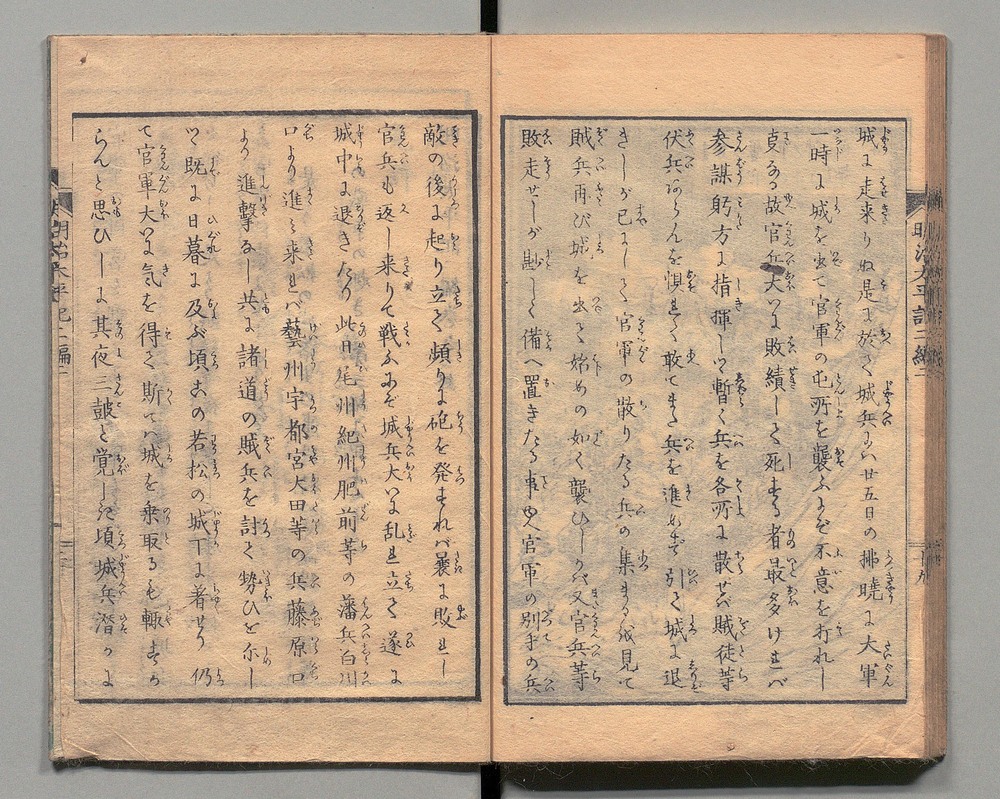 城に走来りぬ是に於て城兵ハ廿五日の拂曉に大軍
一時に城を出て官軍の屯所を襲ふにぞ不意を打れし
故官兵大いに敗績して死する者最多けれバ
参謀躬方に指揮して暫く兵を各所に散せバ賊徒等
伏兵あらんを惧れて敢てまた兵を進めずして引て城に退
きしが已にして官軍の散りたる兵の集まるを見て
賊兵再び城を出て始めの如く襲ひしが又官兵等
敗走せしが斟しく備へ置きたる事ゆゑ官軍の別手の兵
敵の後に起り立て頻りに砲を発すれバ曩に敗れし
官兵も返し来りて戦ふにぞ城兵大いに乱れ立て遂に
城中に退きたり此日尾州紀州肥前等の藩兵白川
口より進み来れバ藝州宇都宮大田等の兵藤原口
より進撃なし共に諸道の賊兵を討て勢ひを示し
つ既に日暮に及ぶ頃この若松の城下に着せり仍
て官軍大いに気を得て斯てハ城を乗取るも輙すか
らんと思ひしに其夜三皷と覚しき頃城兵潜かに
明治太平記二編二